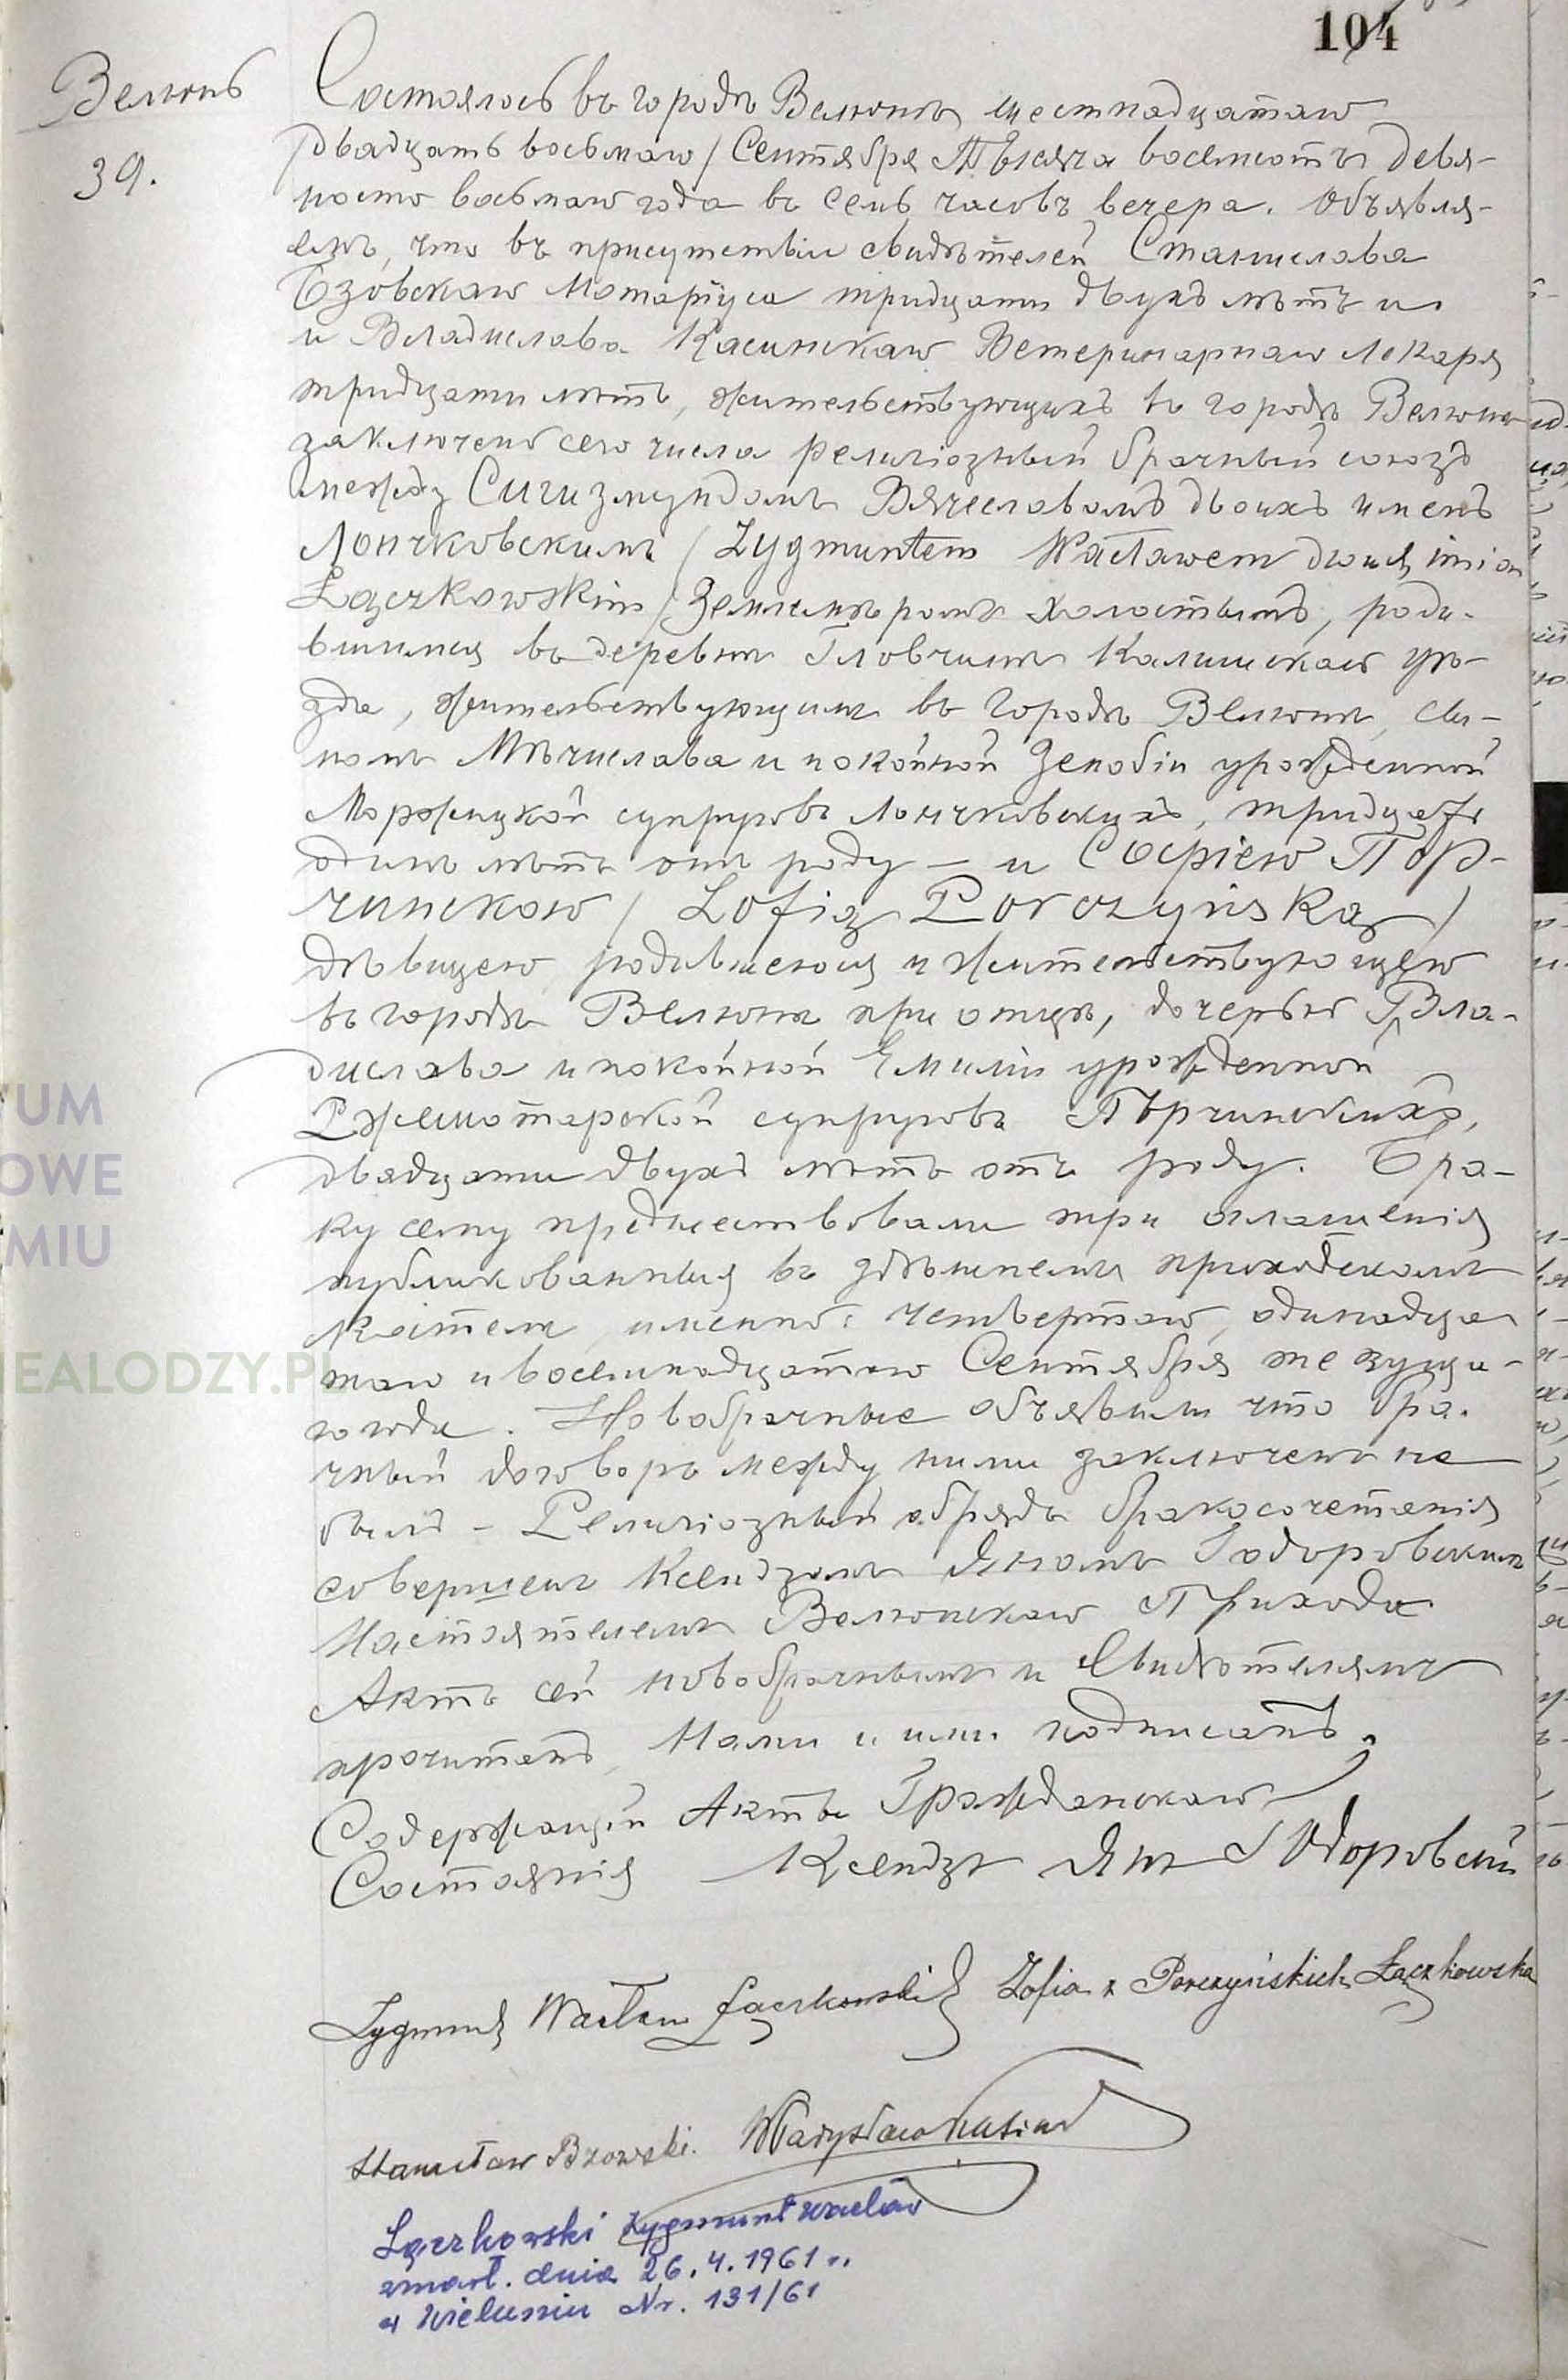 104
Велюнь
39.
Состоялось въ городѣ Велюнѣ шестнадцатаго
/двадцать восьмаго/ Сентября Тысяча восемьсотъ девя-
носто восьмаго года въ семь часовъ вечера. Объявля-
емъ, что въ присутствіи свидѣтелей Станислава
Бзовскаго Нотаріуса тридцати двухъ лѣтъ и
и Владислава Касинскаго Ветеринарнаго Лекаря
тридцати лѣтъ, жительствующихъ въ городѣ Велюнѣ
заключенъ сего числа религіозный брачный союзъ
между Сигизмундомъ Вячеславомъ двоихъ именъ
Лончковскимъ /Zygmuntem Wacławem dwuch imion
Łączkowskim/ Землемѣромъ холостымъ, роди-
вшимся въ деревнѣ Гловчинѣ Калишскаго уѣ-
зда, жительствующимъ въ городѣ Велюнѣ, сы-
номъ Мѣчислава и покойной Зенобіи урожденной
Моржицкой супруговъ Лончковскихъ, тридцать
одинъ лѣтъ отъ роду — и Софіею Пор-
чинскою / Zofią Porczyńską /
дѣвицею, родившеюся и жительствующею
въ городѣ Велюнѣ при отцѣ, дочерью Вла-
дислава и покойной Емиліи урожденной
супруговъ Порчинскихъ,
двадцати двухъ лѣтъ отъ роду. Бра-
ку сему предшествовали три оглашенія
публикованныя въ здѣшнемъ приходскомъ
костелѣ, именно: четвертаго, одинадца-
таго и восемнадцатаго Сентября текуща-
го года. Новобрачные объявили что бра-
чный договоръ между ними заключенъ не
былъ — Религіозный обрядъ бракосочетанія
совершенъ Ксендзомъ Яномъ Годоровскимъ
Настоятелемъ Велюнскаго Прихода
Актъ сей новобрачнымъ и Свидѣтелямъ
прочитанъ, Нами и ими подписанъ.
Содержащій Акты Гражданскаго
Состоянія Ксендзъ Янъ Годоровскій
Zygmunt Wacław Łączkowski Zofia z Porczyńskich Łączkowska
Stanisław Bzowski. Władysław Kasinski
Łączkowski Zygmunt Wacław
zmarł. dnia 26.4.1961 r.
w Wieluniu Nr. 131/61
UM
OWE
MIU
NEALODZY.PL